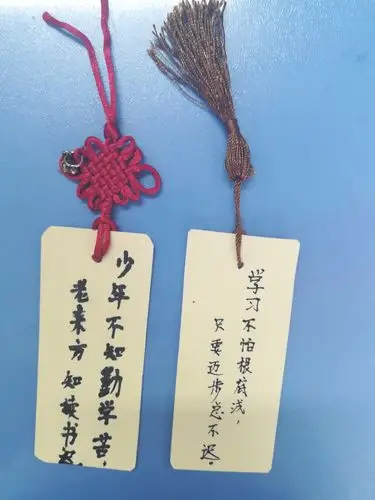 少年不知勤学苦，
老来方知读书迟
学习不怕根底浅，
只要迈步总不迟.